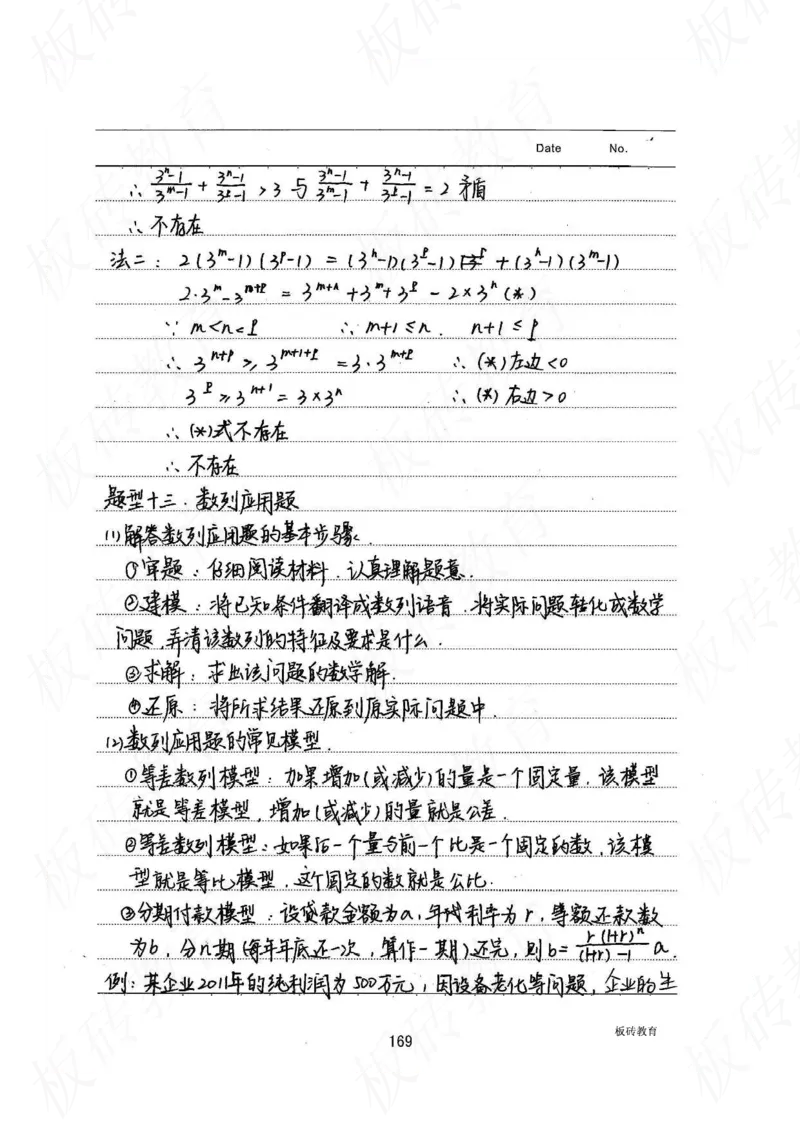 Date No.
∴ (3ⁿ-1)/(3ᵐ-1) + (3ⁿ-1)/(3ᵖ-1) > 3 与 (3ⁿ-1)/(3ᵐ-1) + (3ⁿ-1)/(3ᵖ-1) = 2 矛盾
∴ 不存在
法二: 2(3ᵐ-1)(3ᵖ-1) = (3ⁿ-1)(3ᵖ-1) + (3ⁿ-1)(3ᵐ-1)
2·3ᵐ - 3ⁿ⁺ᵖ = 3ᵐ⁺ⁿ + 3ᵐ + 3ᵖ - 2×3ⁿ (*)
∵ m<n<p ∴ m+1≤n. n+1≤p
∴ 3ⁿ⁺ᵖ ≥ 3ᵐ⁺¹⁺ᵖ = 3·3ᵐ⁺ᵖ ∴ (*)左边<0
3ᵖ ≥ 3ⁿ⁺¹ = 3×3ⁿ ∴ (*)右边>0
∴ (*)式不存在
∴ 不存在
题型十三. 数列应用题
(1)解答数列应用题的基本步骤.
①审题: 仔细阅读材料. 认真理解题意.
②建模: 将已知条件翻译成数列语言. 将实际问题转化成数学
问题, 弄清该数列的特征及要求是什么.
③求解: 求出该问题的数学解.
④还原: 将所求结果还原到原实际问题中.
(2)数列应用题的常见模型.
①等差数列模型: 如果增加(或减少)的量是一个固定量, 该模型
就是等差模型, 增加(或减少)的量就是公差.
②等差数列模型: 如果后一个量与前一个比是一个固定的数, 该模
型就是等比模型, 这个固定的数就是公比.
③分期付款模型: 设贷款金额为a, 年利率为r, 等额还款数
为b, 分n期(每年年底还一次, 算作一期)还完, 则b= r(1+r)ⁿ/((1+r)ⁿ-1) a.
例: 某企业2011年的纯利润为500万元, 因设备老化等问题, 企业的生
板砖教育
169